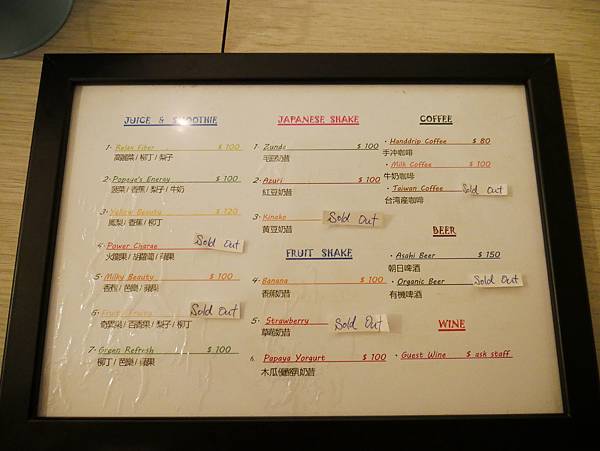 JUICE & SMOOTHIE
1. Relax Fiber $ 100
高麗菜 / 柳丁 / 梨子
2. Papaya's Energy $ 100
菠菜 / 香蕉 / 梨子 / 牛奶
3. Yellow Beauty $ 120
鳳梨 / 香蕉 / 柳丁
4. Power Charge Sold Out
火龍果 / 胡蘿蔔 / 蘋果
5. Milky Beauty $ 100
香蕉 / 芭樂 / 蘋果
6. Sold Out
奇異果 / 百香果 / 梨子 / 柳丁
7. Green Refresh $ 100
柳丁 / 芭樂 / 蘋果
JAPANESE SHAKE
1. Zunda $ 100
毛豆奶昔
2. Azuri $ 100
紅豆奶昔
3. Kinako Sold Out
黃豆奶昔
FRUIT SHAKE
4. Banana $ 100
香蕉奶昔
5. Strawberry Sold Out
草莓奶昔
6. Papaya Yorgurt $ 100
木瓜優酪乳奶昔
COFFEE
• Handdrip Coffee $ 80
手沖咖啡
• Milk Coffee $ 100
牛奶咖啡
• Taiwan Coffee Sold Out
台湾産咖啡
BEER
• Asahi Beer $ 150
朝日啤酒
• Organic Beer Sold Out
有機啤酒
WINE
• Guest Wine $ ask staff